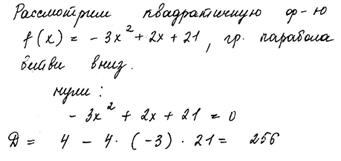 Рассмотрим квадратичную ф-ю
f(x) = - 3x² + 2x + 21, гр. парабола
ветви вниз.
нули:
- 3x² + 2x + 21 = 0
D = 4 - 4 · (-3) · 21 = 256